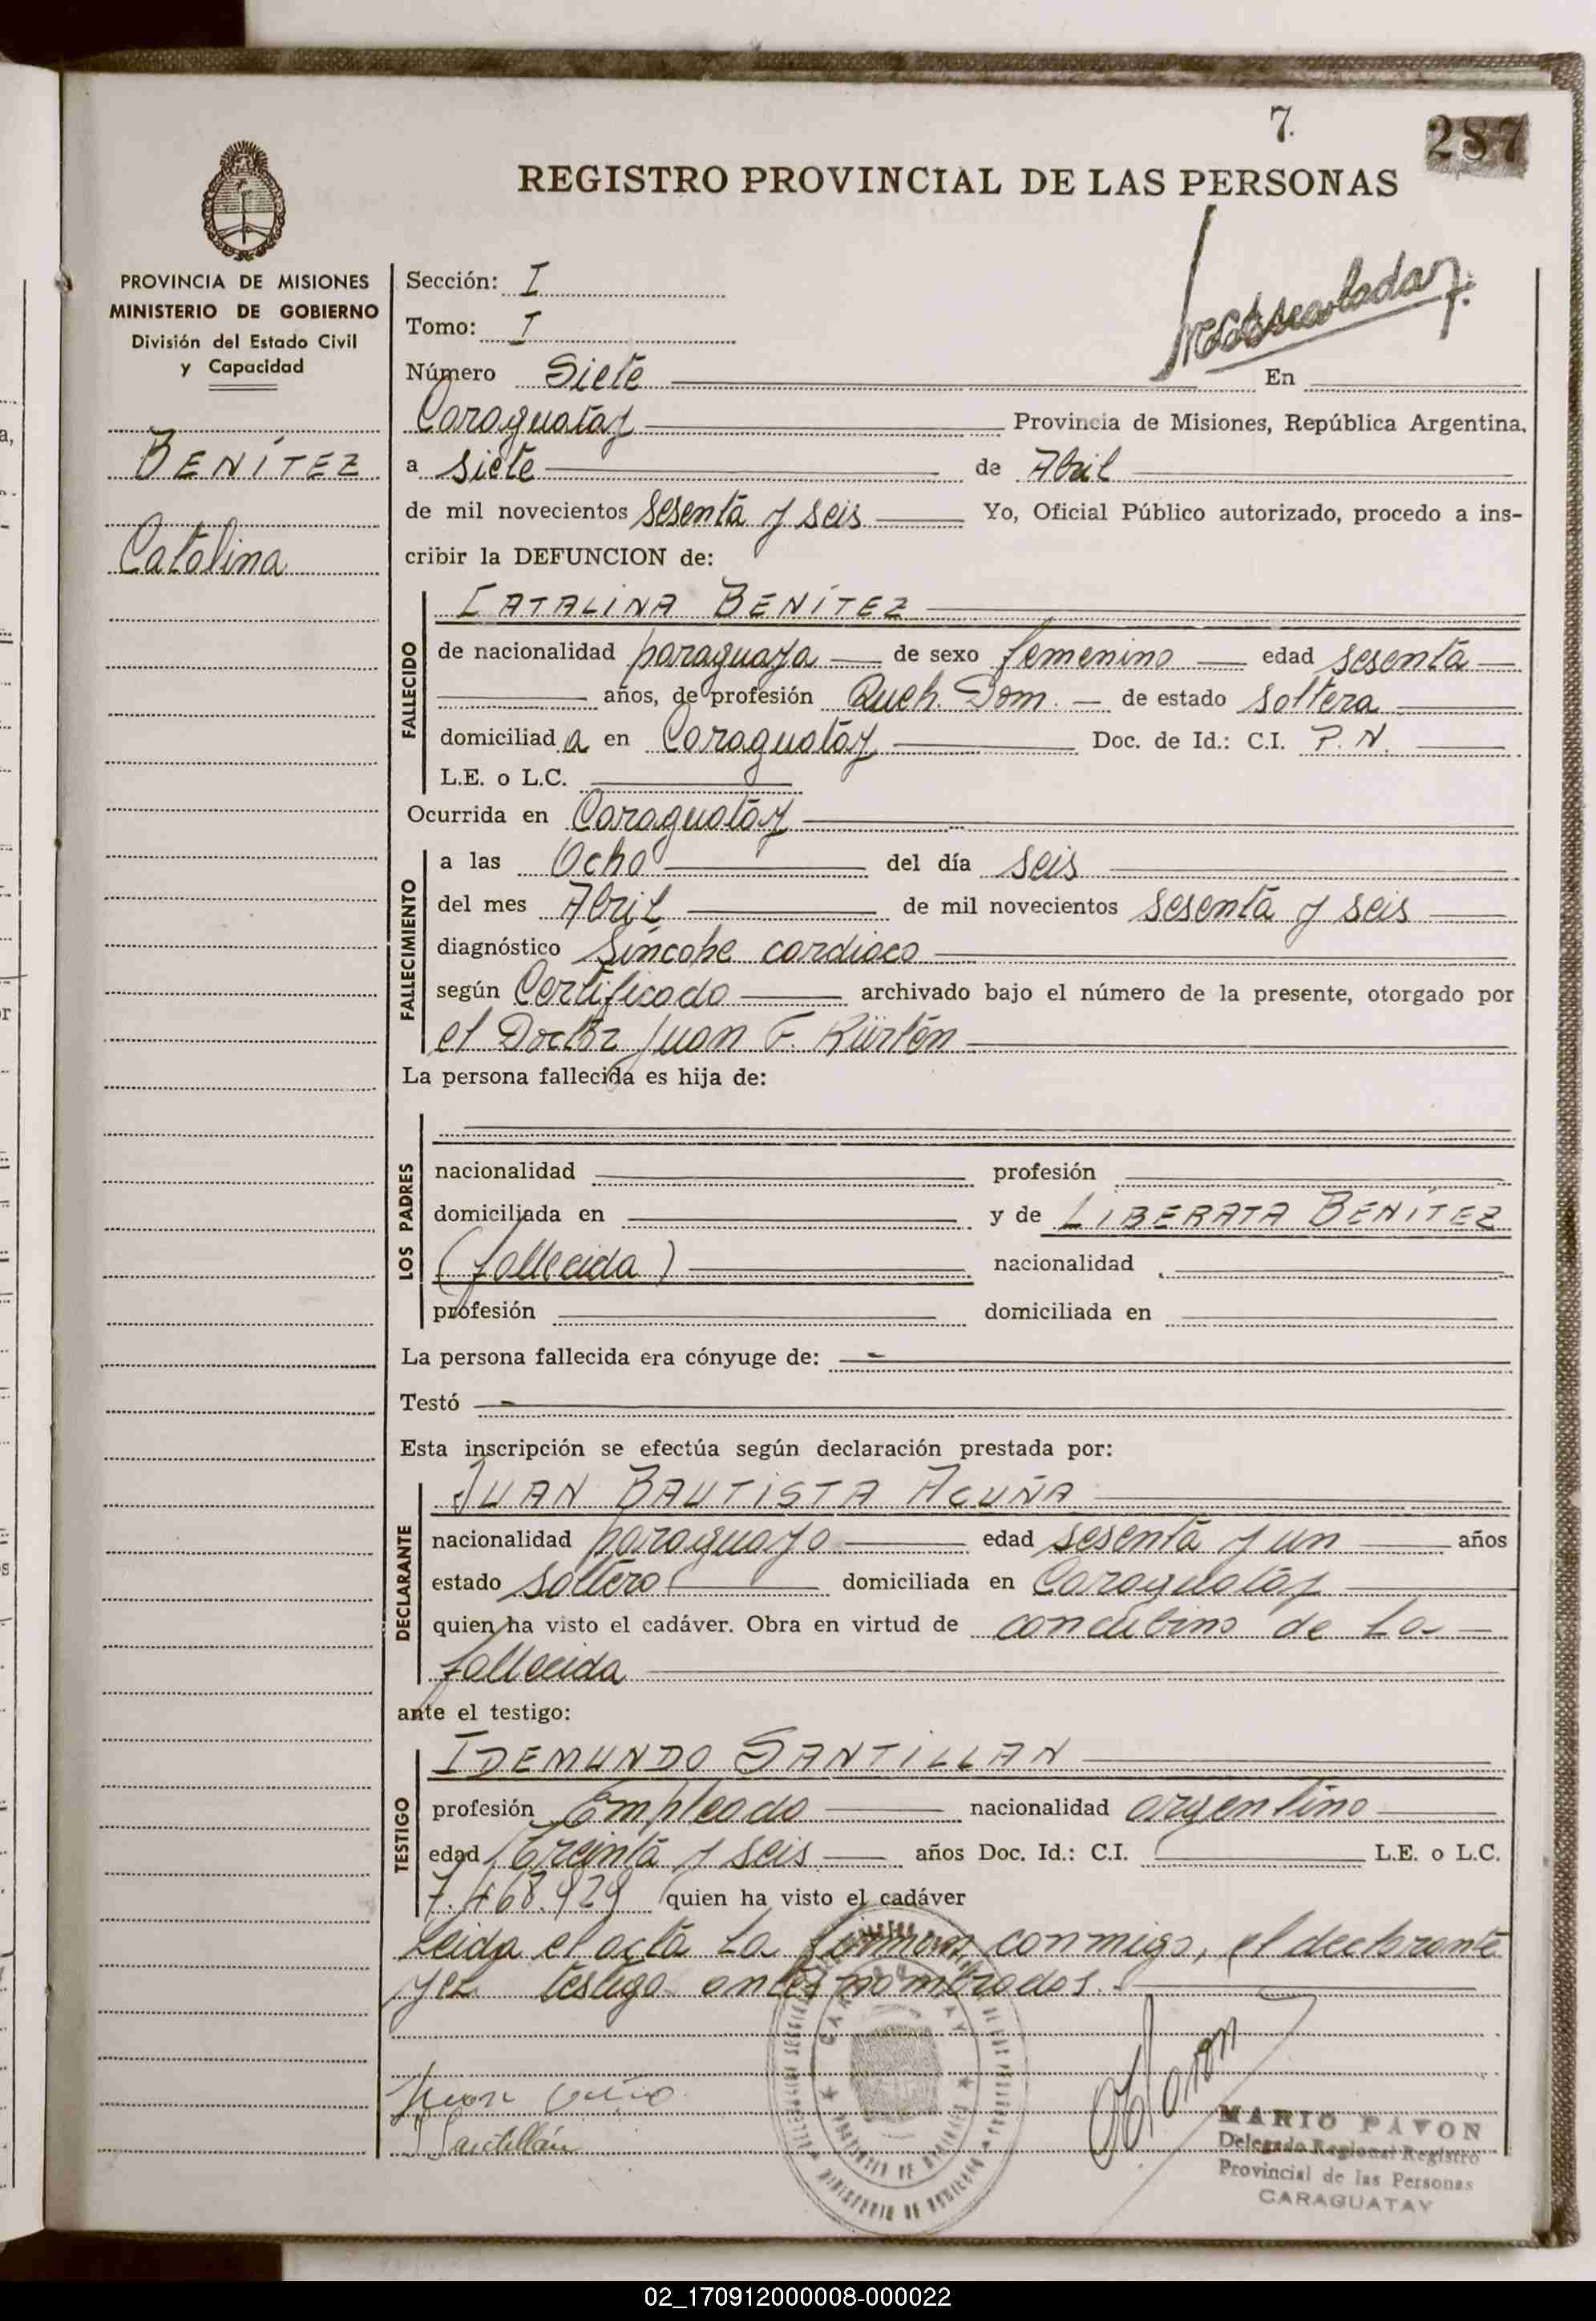 7.
287
REGISTRO PROVINCIAL DE LAS PERSONAS
PROVINCIA DE MISIONES
MINISTERIO DE GOBIERNO
División del Estado Civil
y Capacidad
BENÍTEZ
Catalina
Sección: I
Tomo: I
Número Siete En
Caraguatay Provincia de Misiones, República Argentina,
a siete de Abril
de mil novecientos sesenta y seis Yo, Oficial Público autorizado, procedo a ins-
cribir la DEFUNCION de:
FALLECIDO
CATALINA BENÍTEZ
de nacionalidad paraguaya de sexo femenino edad sesenta
años, de profesión Queh. Dom. de estado soltera
domiciliad a en Caraguatay Doc. de Id.: C.I. P. N.
L.E. o L.C.
Ocurrida en Caraguatay
FALLECIMIENTO
a las Ocho del día seis
del mes Abril de mil novecientos sesenta y seis
diagnóstico Síncope cardiaco
según Certificado archivado bajo el número de la presente, otorgado por
el Doctor Juan F. Kürten
La persona fallecida es hija de:
LOS PADRES
nacionalidad profesión
domiciliada en y de LIBERATA BENÍTEZ
(fallecida) nacionalidad
profesión domiciliada en
La persona fallecida era cónyuge de: -
Testó -
Esta inscripción se efectúa según declaración prestada por:
DECLARANTE
JUAN BAUTISTA ACUÑA
nacionalidad paraguayo edad sesenta y un años
estado soltero domiciliada en Caraguatay
quien ha visto el cadáver. Obra en virtud de concubino de la
fallecida
ante el testigo:
TESTIGO
IDEMUNDO SANTILLAN
profesión Empleado nacionalidad argentino
edad Treinta y seis años Doc. Id.: C.I. L.E. o L.C.
7.468.929 quien ha visto el cadáver
Leida el acta la firman conmigo, el declarante
y el testigo antes nombrados.
Juan
Santillán
MARIO PAVON
Delegado Regional Registro
Provincial de las Personas
CARAGUATAY
02_170912000008-000022